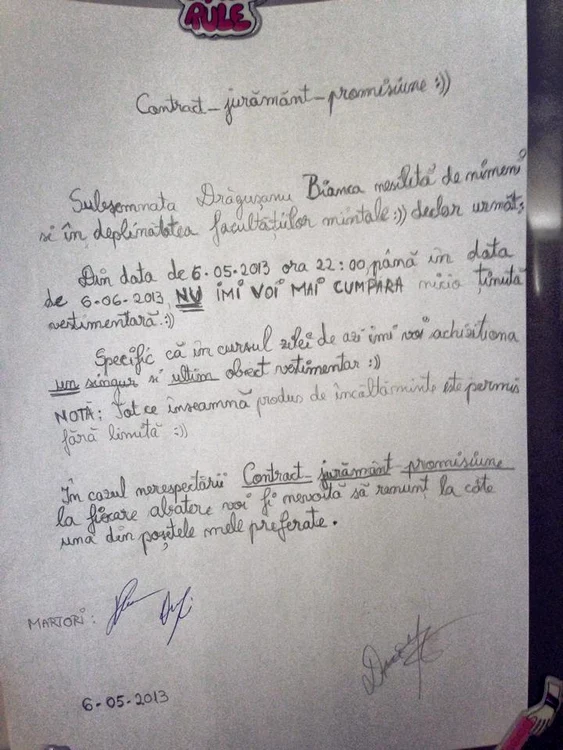 RULE
Contract_jurământ_promisiune :))
Subsemnata Drăgușanu Bianca nesilită de nimeni
si în deplinătatea facultățiilor mintale :)) declar următ;
Din data de 6.05.2013 ora 22:00 până în data
de 6.06.2013, NU IMI VOI MAI CUMPARA nicio ținută
vestimentară :))
Specific că în cursul zilei de azi imi voi achizitiona
un singur si ultim obiect vestimentar :))
NOTĂ: Tot ce inseamnă produs de incăltăminte este permis
fără limită :))
În cazul nerespectării Contract_jurământ_promisiune
la fiecare abatere voi fi nevoită să renunț la câte
una din poșetele mele preferate.
MARTORI:
6-05-2013